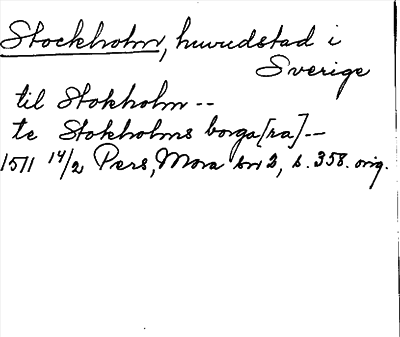 Stockholm, huvudstad i
Sverige
til Stokholm --
te Stokholms borga[ra] --
1511 14/2 Pers, Mora br 2, s. 358. orig.